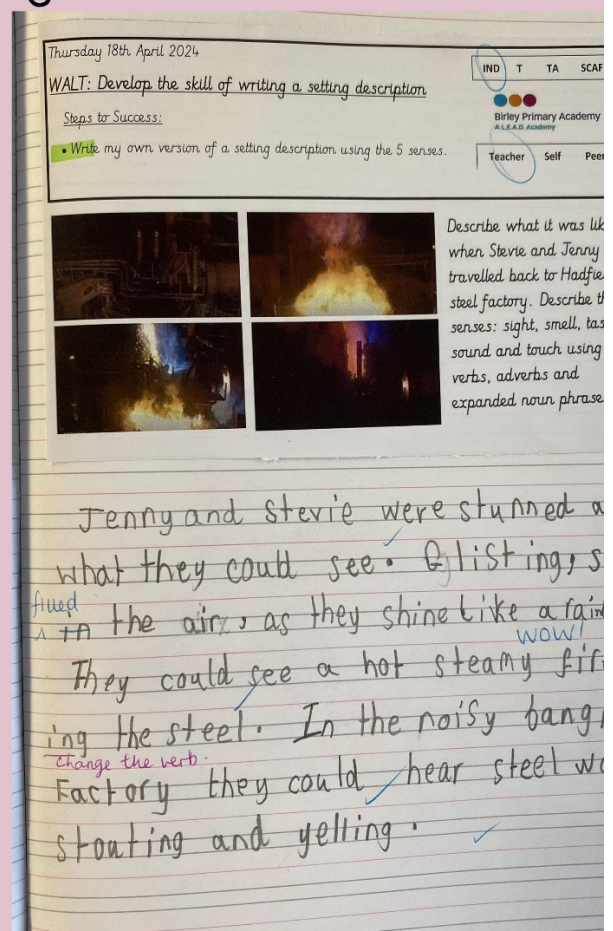 Thursday 18th April 2024
WALT: Develop the skill of writing a setting description
Steps to Success:
• Write my own version of a setting description using the 5 senses.
IND T TA SCAF
Birley Primary Academy
A L.E.A.D. Academy
Teacher Self Peer
Describe what it was lik
when Stevie and Jenny
travelled back to Hadfie
steel factory. Describe th
senses: sight, smell, tas
sound and touch using
verbs, adverbs and
expanded noun phrase
Jenny and Stevie were stunned a
what they could see. Glisting, s
filled
in the air, as they shine like a rain
wow!
They could see a hot steamy fir
ing the steel. In the noisy bang
change the verb.
Factory they could hear steel wo
stouting and yelling.